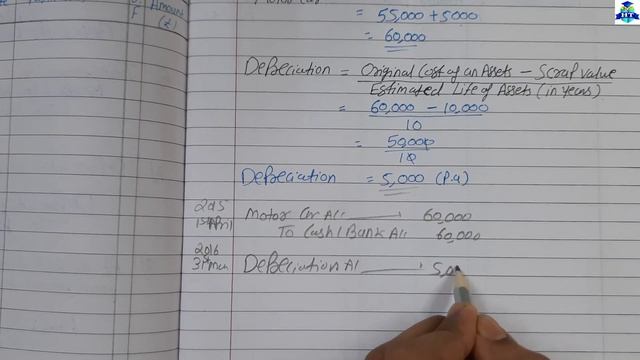 Amount
F (₹)
= 55,000 + 5000
= 60,000
Depreciation = Original Cost of an Assets – Scrap value
Estimated Life of Assets (in years)
= 60,000 – 10,000
10
= 50,000
10
Depreciation = 5,000 (P.a)
2015
1st April Motor Car A/c 60,000
To Cash/Bank A/c 60,000
2016
31st Mar Depreciation A/ 5,0